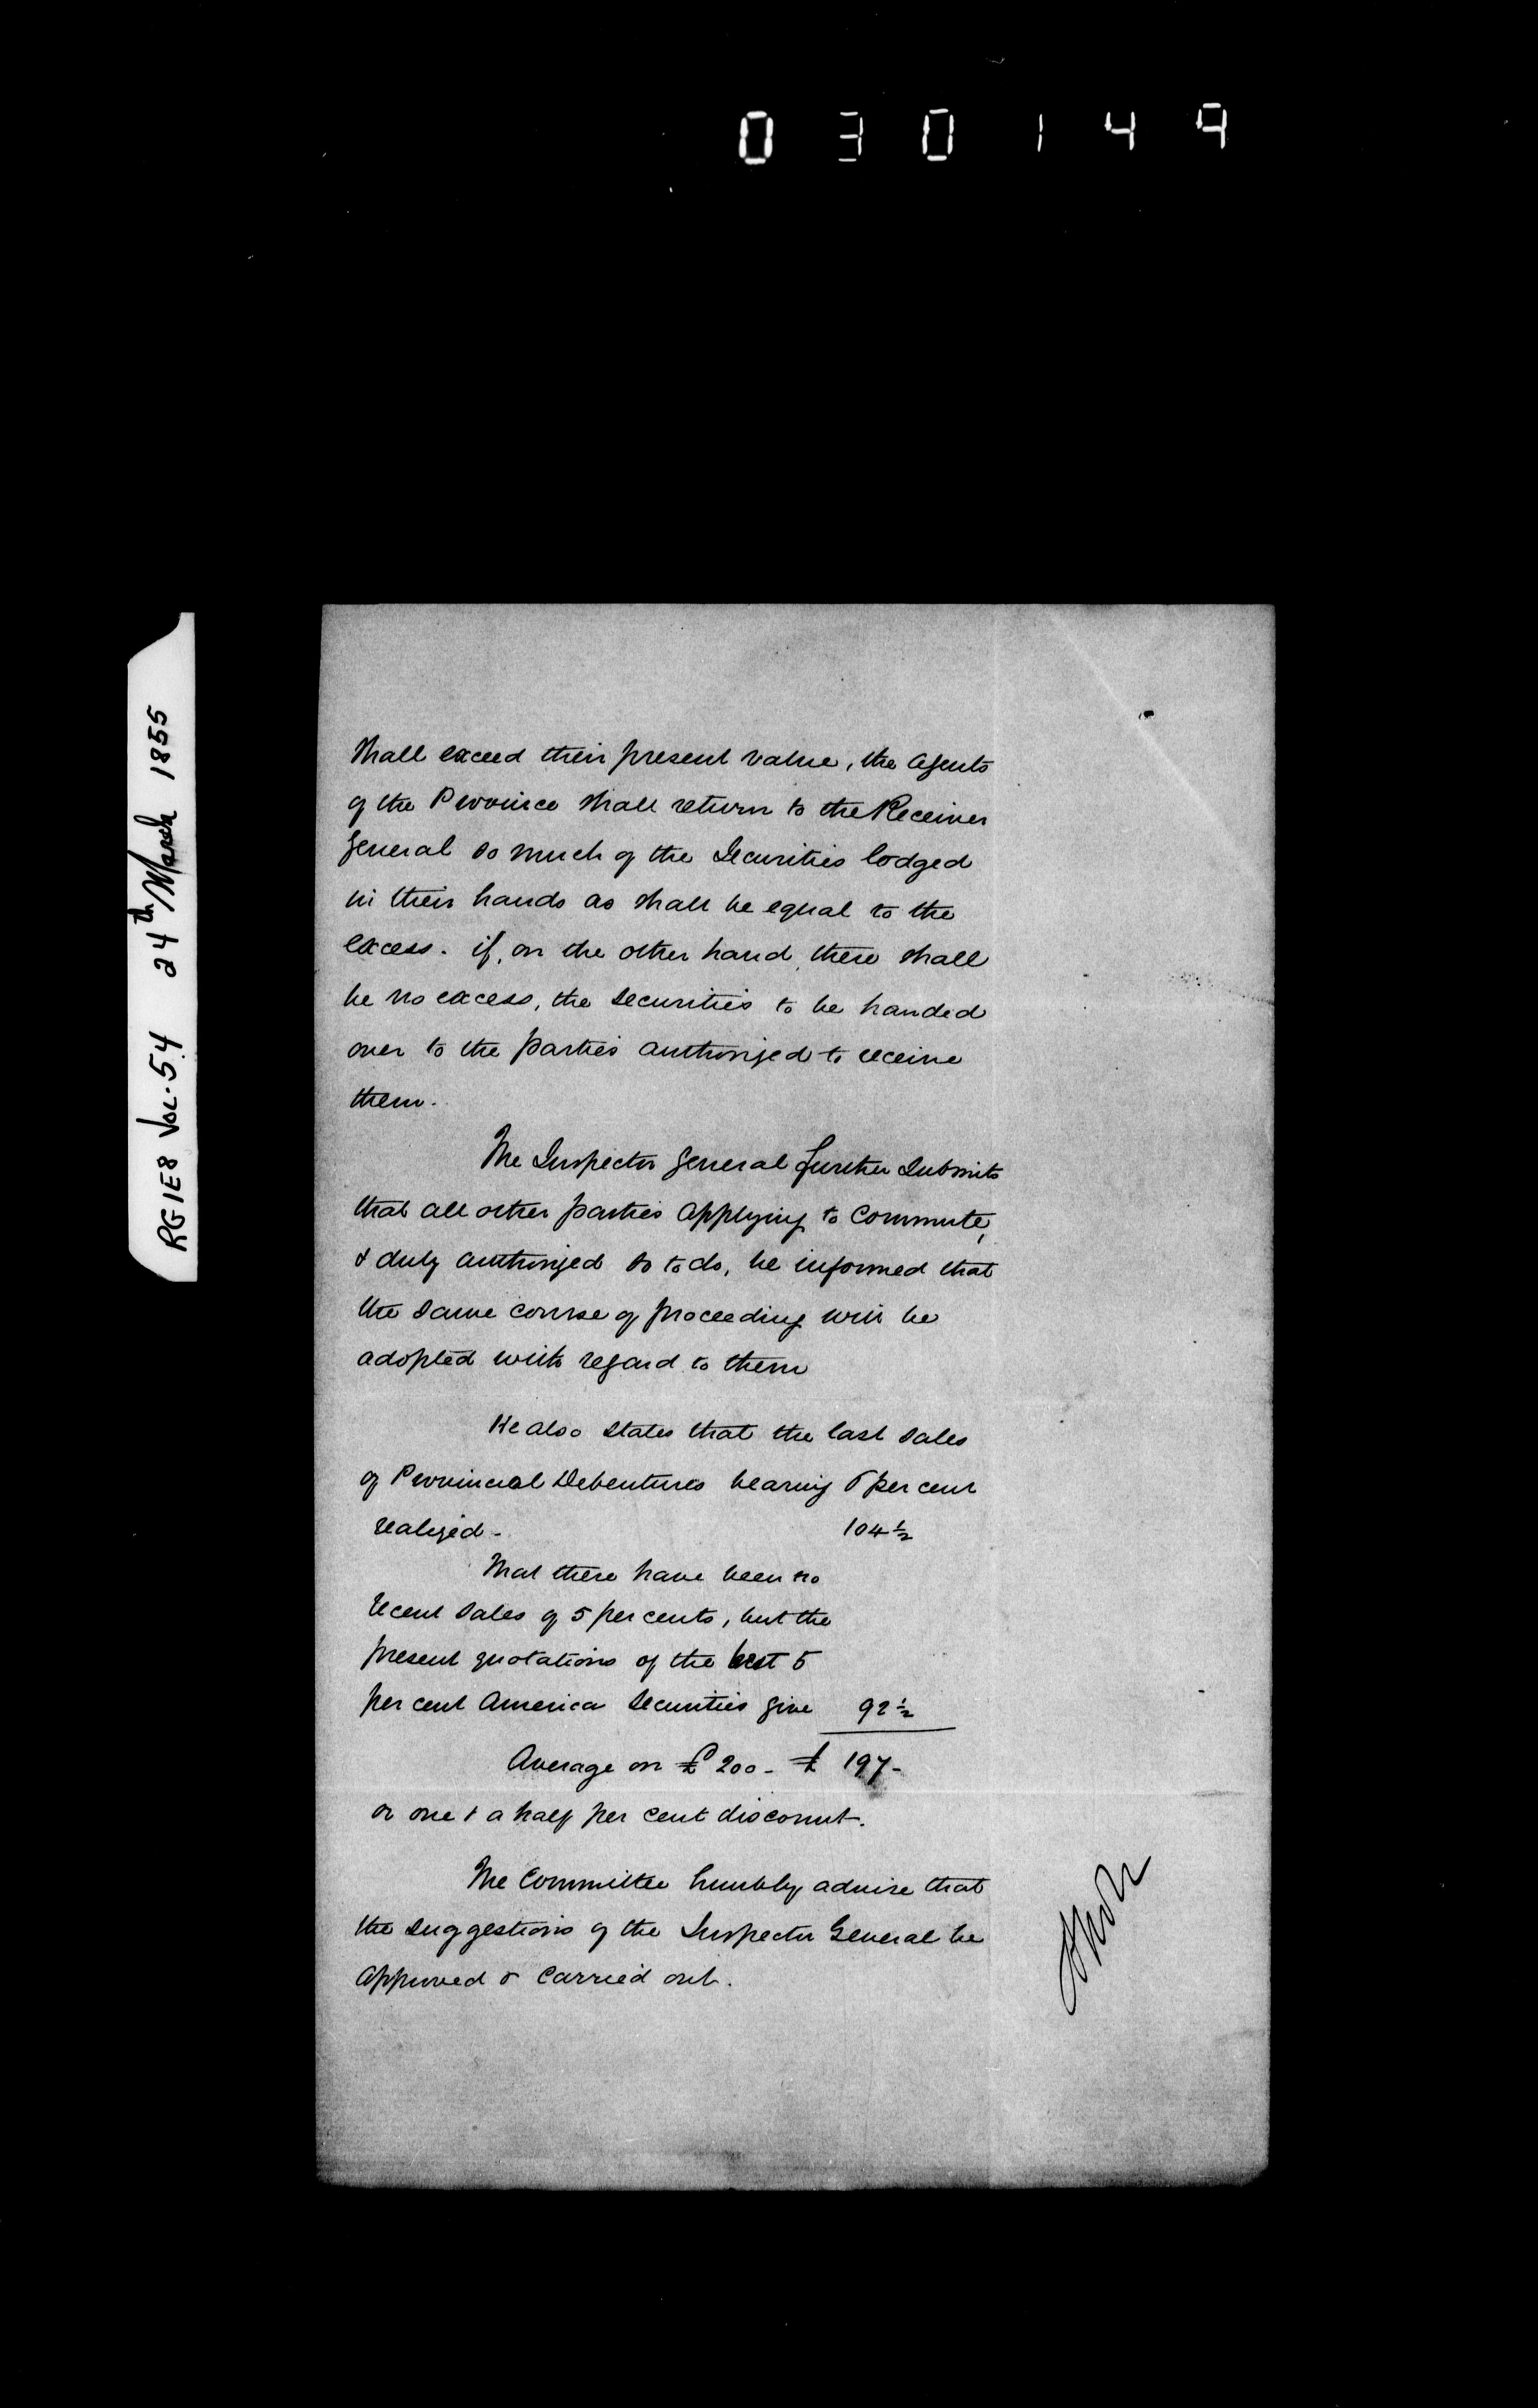 030149
RG1E8 Vol. 54 24th March 1855
shall exceed their present value, the Agents
of the Province shall return to the Receiver
General so much of the Securities lodged
in their hands as shall be equal to the
excess. if, on the other hand, there shall
be no excess, the Securities to be handed
over to the parties authorized to receive
them.
The Inspector General further Submits
that all other parties applying to Commute,
& duly authorized so to do, be informed that
the same course of proceeding will be
adopted with regard to them
He also States that the last Sales
of Provincial Debentures bearing 6 per cent
realized - 104 1/2
That there have been no
recent Sales of 5 per cents, but the
present quotations of the best 5
per cent America Securities give 92 1/2
Average on £ 200 - £ 197 -
or one & a half per cent discount.
The Committee humbly advise that
the suggestions of the Inspector General be
approved & carried out.